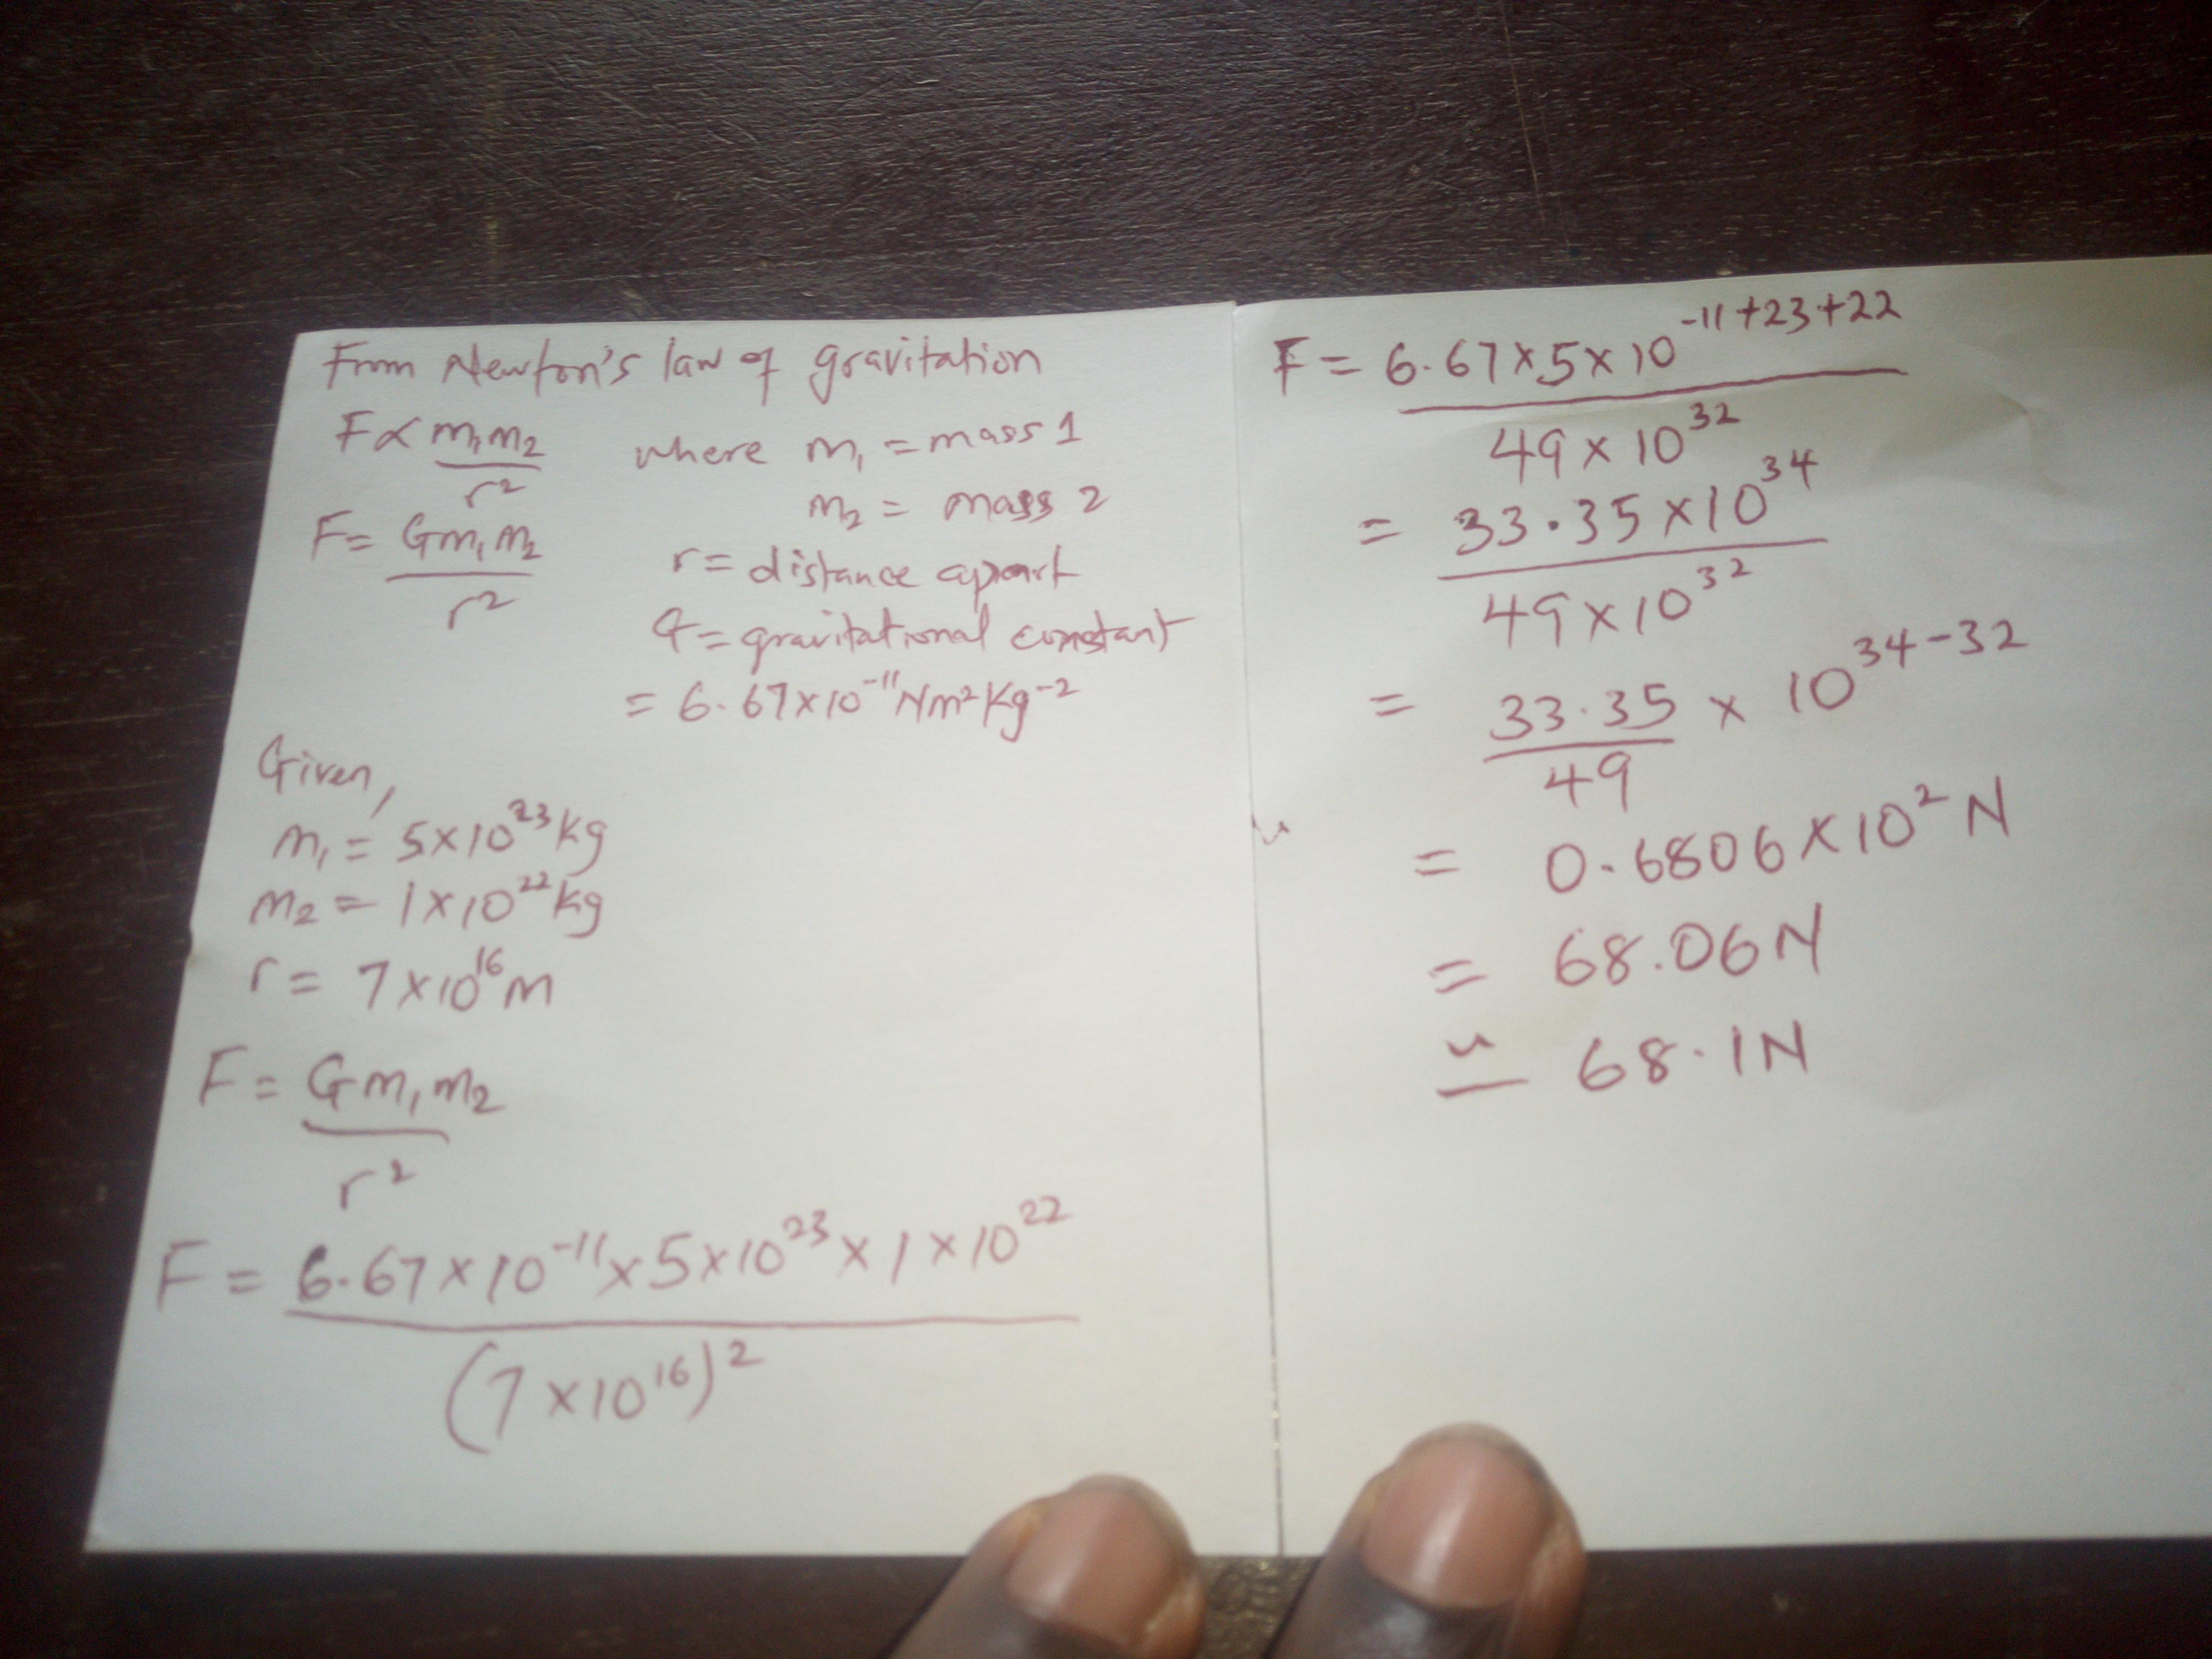 From Newton's law of gravitation
F ∝ m₁m₂/r² where m₁ = mass 1
m₂ = mass 2
F = Gm₁m₂/r²
r = distance apart
G = gravitational constant
= 6.67×10⁻¹¹Nm²Kg⁻²
Given,
m₁ = 5×10²³kg
m₂ = 1×10²²kg
r = 7×10¹⁶m
F = Gm₁m₂/r²
F = 6.67×10⁻¹¹×5×10²³×1×10²²/(7×10¹⁶)²
F = 6.67×5×10⁻¹¹⁺²³⁺²²/49×10³²
= 33.35×10³⁴/49×10³²
= 33.35/49 × 10³⁴⁻³²
= 0.6806×10² N
= 68.06N
≃ 68.1N